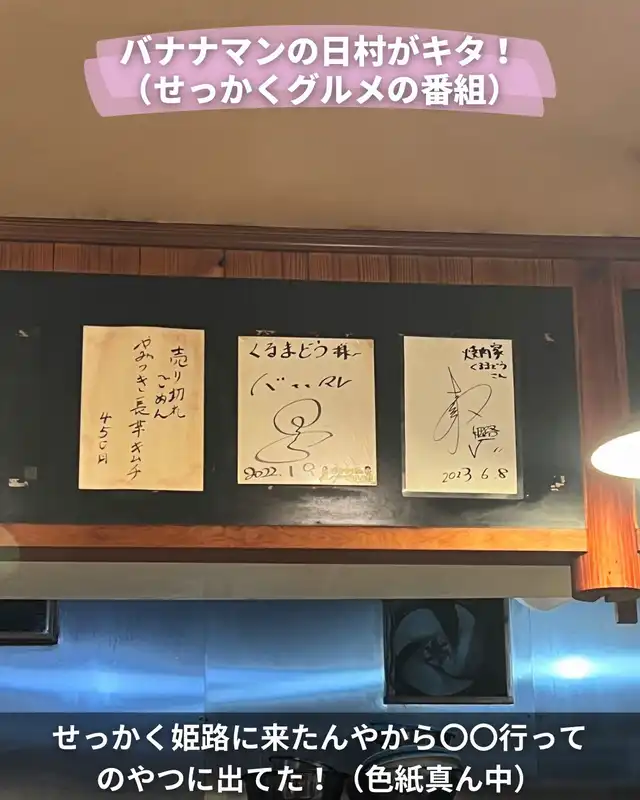 バナナマンの日村がキタ！
（せっかくグルメの番組）
売り切れ
ごめん
やみつき長芋キムチ
450円
くるまどう様へ
2022.1.9
焼肉家
くるまどう
さん
2023 6.8
せっかく姫路に来たんやから〇〇行って
のやつに出てた！（色紙真ん中）